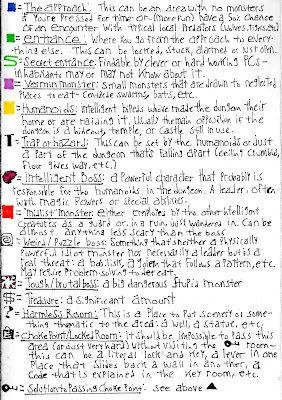 =The approach: This can be an area with no monsters
if you're pressed for time or (more fun) have a 50% chance
of an encounter with typical local predators (wolves, tigers, etc)
= entrance: Where you go from the approach to every-
thing else. This can be locked, stuck, alarmed or just open.
S=Secret entrance: Findable by clever or hard working PCs-
inhabitants may or may not know about it.
=Vermin monster: Small monsters that are drawn to neglected
places to eat- Centipede swarms, bats, etc.
=Humanoids: intelligent bipeds whove made the dungeon their
home or are raiding it. Usually the main opposition if the
dungeon is a hideout, temple, or Castle still in use.
T=Trap or hazard: This can be set by the humanoids or just
a part of the dungeon thats falling apart (ceiling crumbled,
floor gives way, etc.)
= Intelligent Boss: a powerful character that probably is
responsible for the humanoids in the dungeon. A leader, often
with magic powers or special abilities.
= "midlist" monster: either employed by the other intelligent
creatures as a guard or, in a ruin, just wandered in. Can be
almost anything less scary than the boss
= Weird/Puzzle boss: Something that's neither a physically
powerful idiot monster nor necessarily a leader but is a
real threat: a basilisk, a golem that follows a pattern, etc.
May require problem-solving to defeat.
=Tough/brutal boss: a big dangerous stupid monster
$= Treasure: a significant amount
?= Harmless Room: This is a place to put scenery or some-
thing thematic to the area: a well, a statue, etc,
= Choke Point/Locked Room: it should be impossible to pass this
area (or just very hard) without visiting the room-
this can be a literal lock and key, a lever in one
place that slides back a wall in another, a
code that's explained in the key room, etc.
=Solution to Passing Choke Point: see above